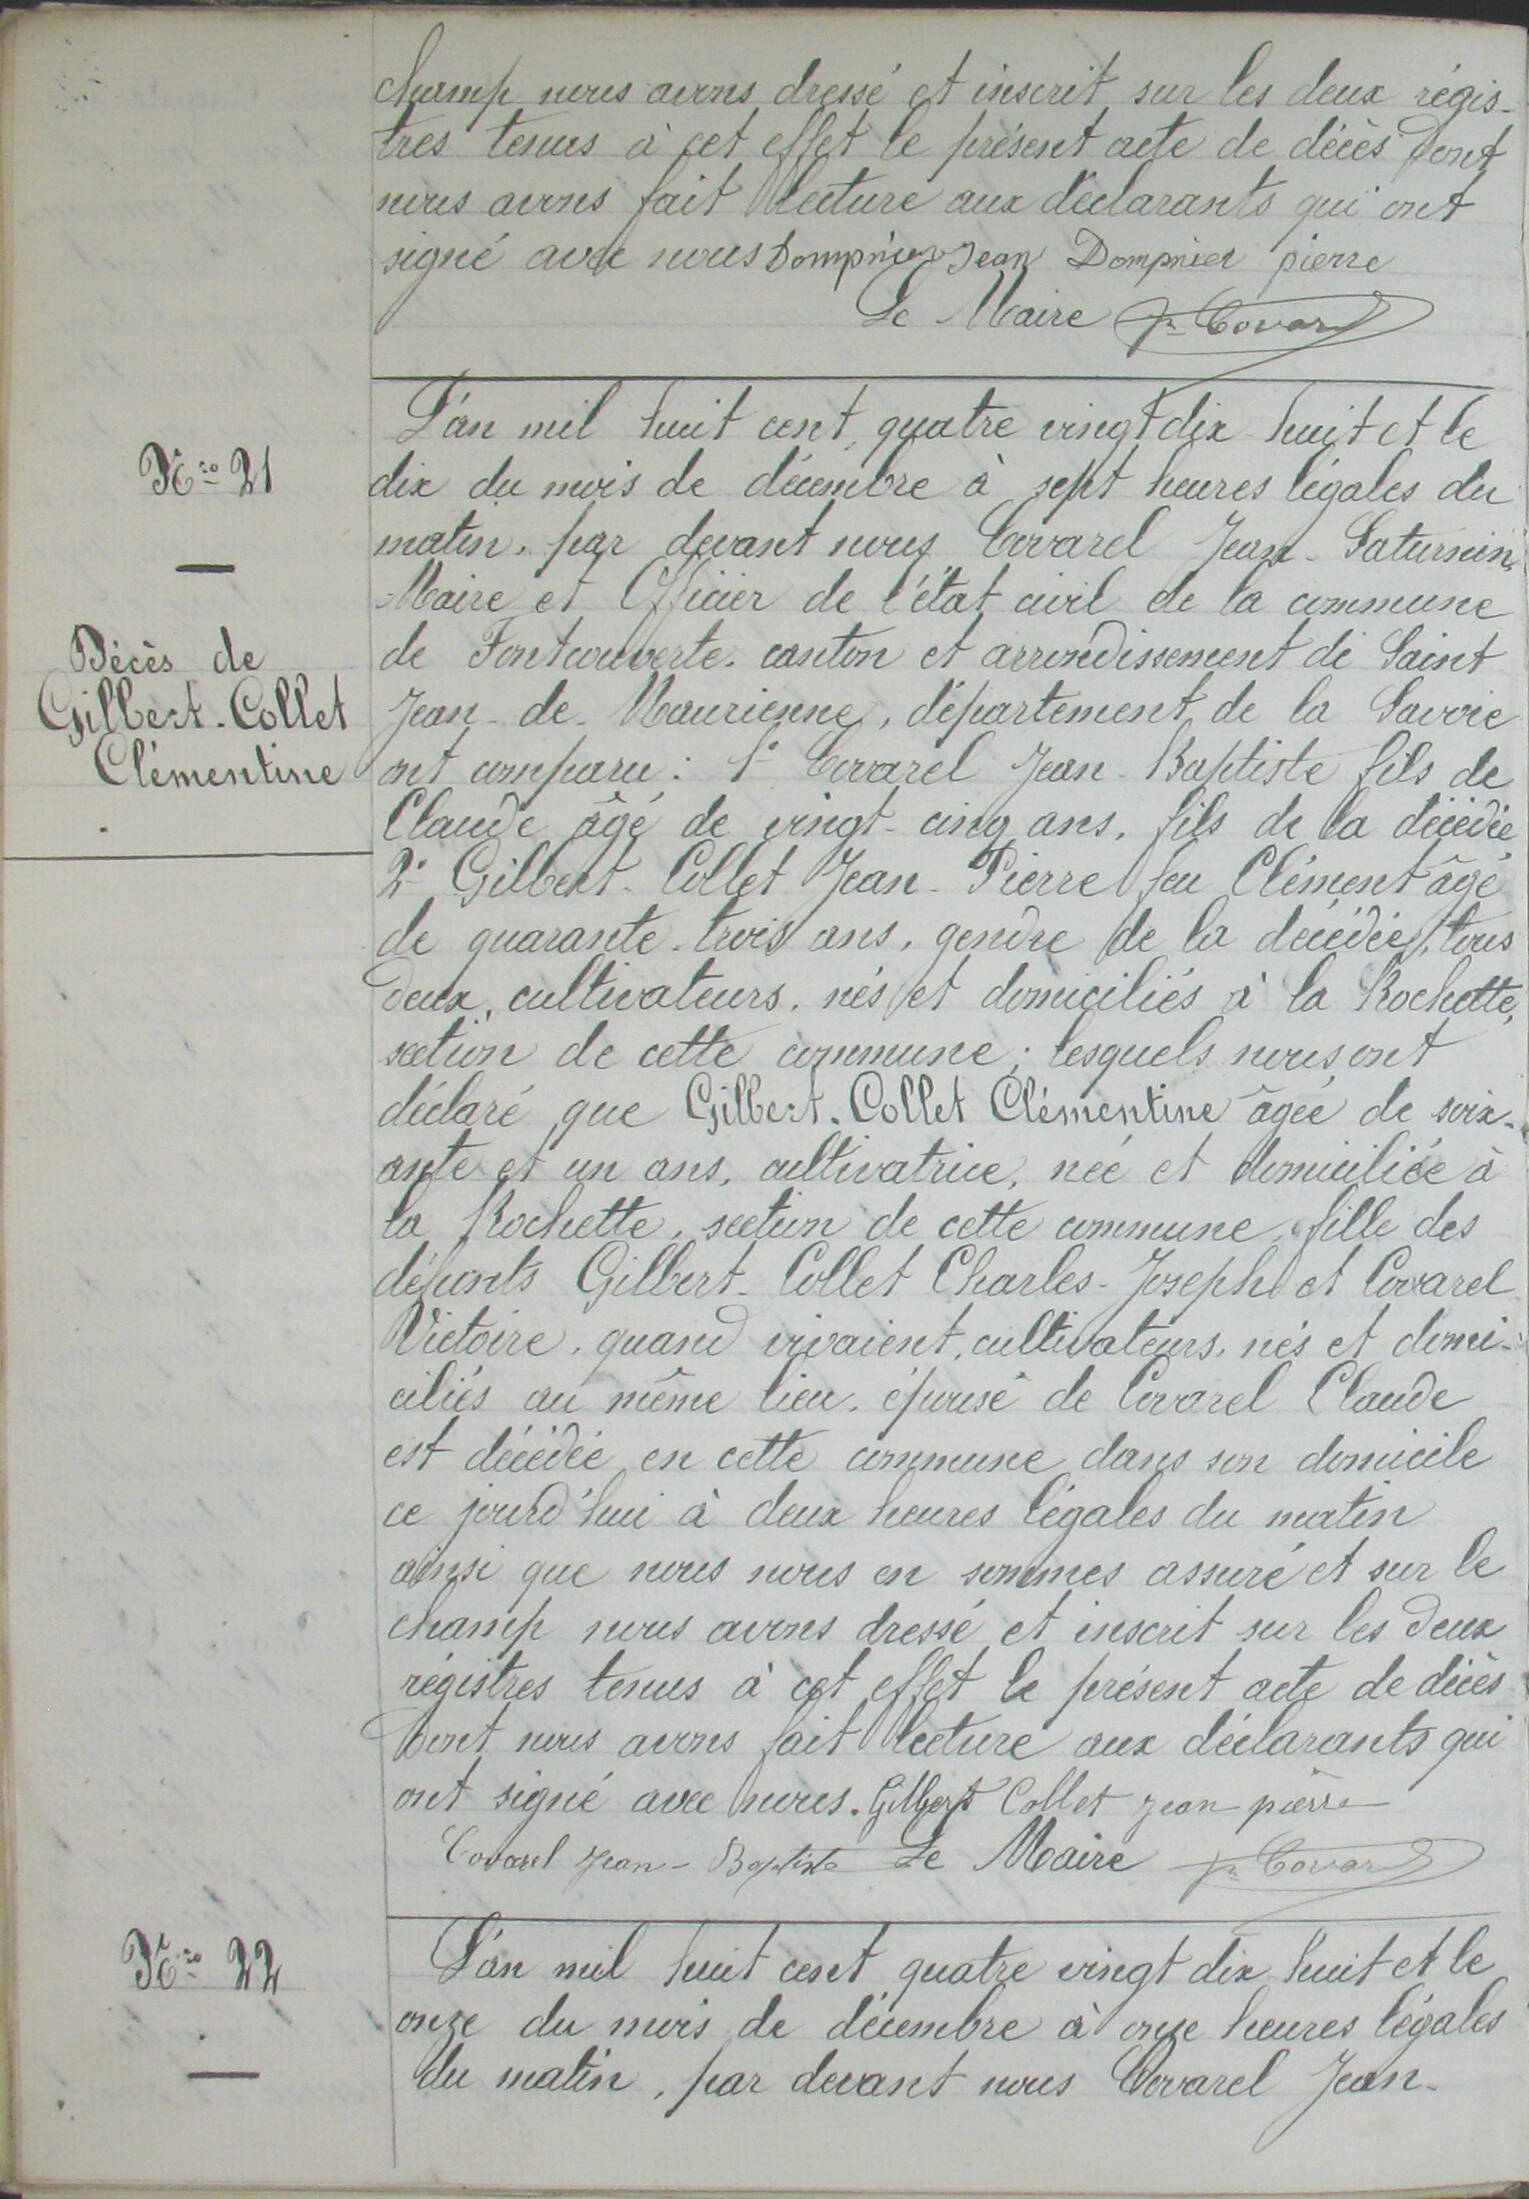 champ nous avons dressé et inscrit sur les deux régis-
tres tenus à cet effet le présent acte de décès dont
nous avons fait lecture aux déclarants qui ont
signé avec nous Dompnier Jean Dompnier pierre
Le Maire Jn Covarel
L'an mil huit cent quatre vingt dix-huit et le
N:ro 21
dix du mois de décembre à sept heures légales du
matin, par devant nous Covarel Jean-Saturnin,
Maire et Officier de l'état civil de la commune
Décès de
de Fontcouverte, canton et arrondissement de Saint
Gilbert-Collet
Jean-de-Maurienne, département de la Savoie
Clémentine
ont comparu: 1° Covarel Jean-Baptiste fils de
Claude âgé de vingt-cinq ans, fils de la décédée
2° Gilbert-Collet Jean-Pierre feu Clément âgé
de quarante-trois ans, gendre de la décédée, tous
deux, cultivateurs, nés et domiciliés à la Rochette,
section de cette commune; lesquels nous ont
déclaré que Gilbert-Collet Clémentine âgée de soix-
ante et un ans, cultivatrice, née et domiciliée à
la Rochette, section de cette commune, fille des
défunts Gilbert-Collet Charles-Joseph et Covarel
Victoire, quand vivaient, cultivateurs, nés et domi-
ciliés au même lieu, épouse de Covarel Claude
est décédée en cette commune dans son domicile
ce jourd'hui à deux heures légales du matin
ainsi que nous nous en sommes assuré et sur le
champ nous avons dressé et inscrit sur les deux
régistres tenus à cet effet le présent acte de décès
dont nous avons fait lecture aux déclarants qui
ont signé avec nous. Gilbert Collet jean pierre
Covarel Jean-Baptiste Le Maire Jn Covarel
N:ro 22
L'an mil huit cent quatre vingt dix huit et le
onze du mois de décembre à onze heures légales
du matin, par devant nous Covarel Jean-